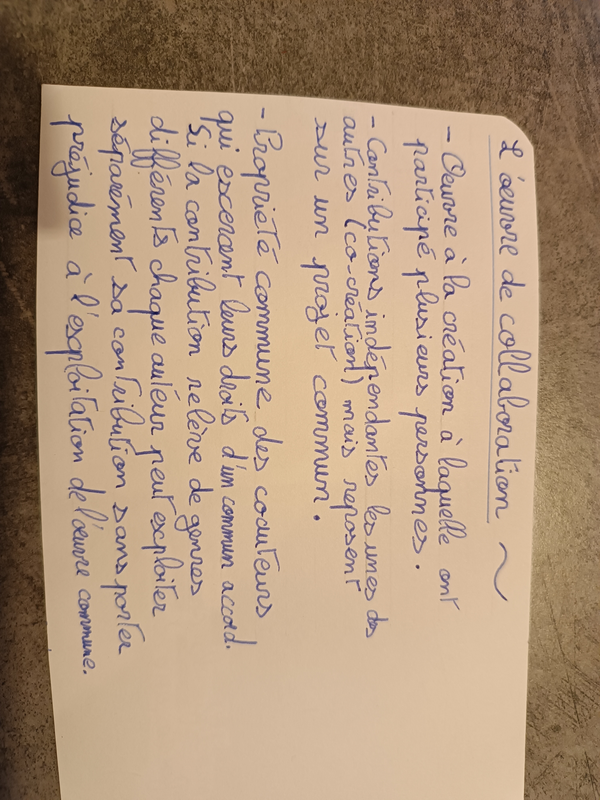 L'œuvre de collaboration ~
- Œuvre à la création à laquelle ont
participé plusieurs personnes.
- Contributions indépendantes les unes des
autres (co-création) mais reposent
sur un projet commun.
- Propriété commune des coauteurs
qui exercent leurs droits d'un commun accord.
Si la contribution relève de genres
différents chaque auteur peut exploiter
séparément sa contribution sans porter
préjudice à l'exploitation de l'œuvre commune.